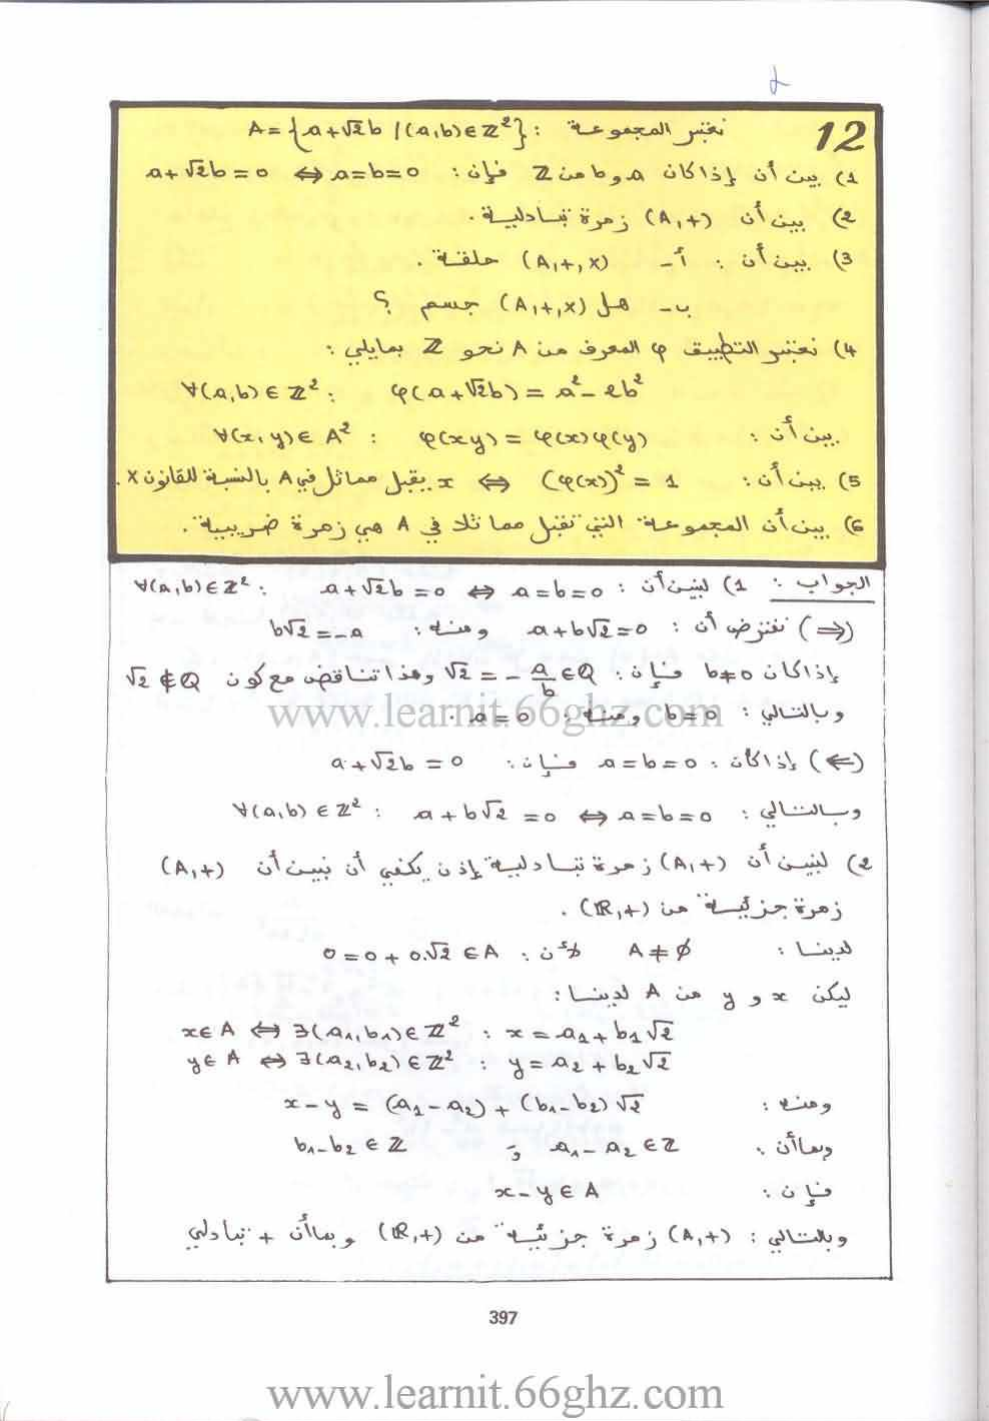 12 نعتبر المجموعة : A = {a+√2b / (a,b) ∈ ℤ²}
1) بين أن إذا كان a و b من ℤ فإن : a+√2b = 0 ⇔ a=b=0
2) بين أن (A,+) زمرة تبادلية .
3) بين أن : أ- (A,+,×) حلقة .
ب- هل (A,+,×) جسم ؟
4) نعتبر التطبيق φ المعرف من A نحو ℤ بمايلي :
∀(a,b) ∈ ℤ² : φ(a+√2b) = a² - 2b²
بين أن : ∀(x,y) ∈ A² : φ(xy) = φ(x)φ(y)
5) بين أن : (φ(x))² = 1 ⇔ x يقبل مماثل في A بالنسبة للقانون × .
6) بين أن المجموعة التي تقبل مماثلا في A هي زمرة ضريبية .
الجواب : 1) لنبين أن : ∀(a,b) ∈ ℤ² : a+√2b = 0 ⇔ a=b=0
(⇒) نفترض أن : a+b√2 = 0 ومنه : b√2 = -a
إذا كان b≠0 فإن : √2 = -a/b ∈ ℚ وهذا تناقض مع كون √2 ∉ ℚ
وبالتالي : b=0 ومنه : a=0 .
(⇐) إذا كان : a=b=0 فإن : a+√2b = 0
وبالتالي : ∀(a,b) ∈ ℤ² : a+b√2 = 0 ⇔ a=b=0
2) لنبين أن (A,+) زمرة تبادلية إذن يكفي أن نبين أن (A,+)
زمرة جزئية من (ℝ,+) .
لدينا : A ≠ ∅ لأن : 0 = 0 + 0.√2 ∈ A
ليكن x و y من A لدينا :
x ∈ A ⇔ ∃(a₁,b₁) ∈ ℤ² : x = a₁+b₁√2
y ∈ A ⇔ ∃(a₂,b₂) ∈ ℤ² : y = a₂+b₂√2
ومنه : x-y = (a₁-a₂) + (b₁-b₂)√2
وبما أن : a₁-a₂ ∈ ℤ و b₁-b₂ ∈ ℤ
فإن : x-y ∈ A
وبالتالي : (A,+) زمرة جزئية من (ℝ,+) وبما أن + تبادلي
397
www.learnit.66ghz.com
www.learnit.66ghz.com